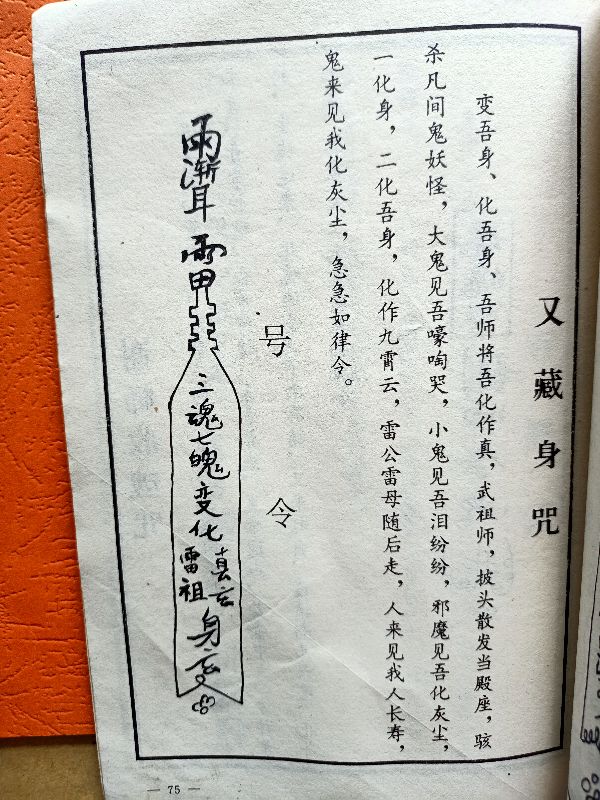 又藏身咒
变吾身、化吾身、吾师将吾化作真，武祖师，披头散发当殿座，骇
杀凡间鬼妖怪，大鬼见吾嚎啕哭，小鬼见吾泪纷纷，邪魔见吾化灰尘，
一化身，二化吾身，化作九霄云，雷公雷母随后走，人来见我人长寿，
鬼来见我化灰尘，急急如律令。
号令
雨渐耳
雨甲
三魂七魄变化
真
雷祖
身
— 75 —